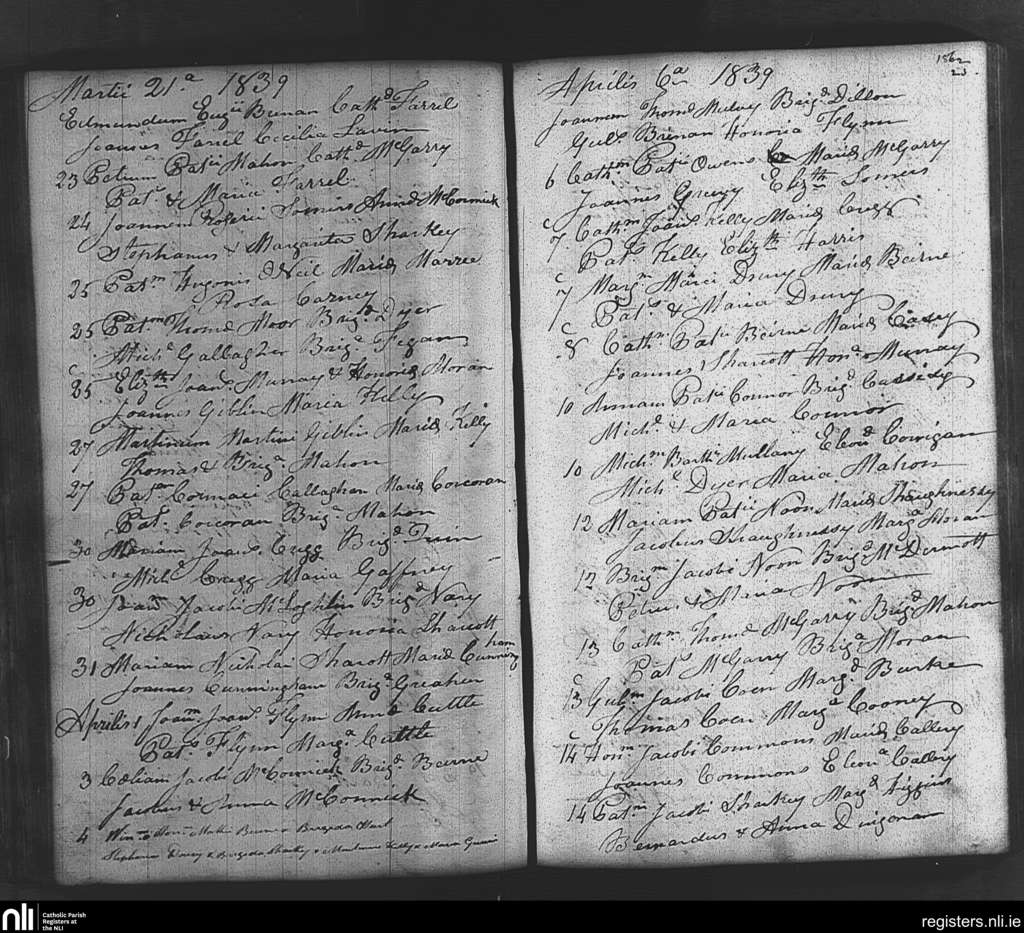 Martii 21a 1839
Edmundum Eugii Bernan Cathd Farrel
Joannes Farrel Cecilia Lavin
23 Petrum Patii Mahon Cathd McGarry
Pats & Maria Farrel
24 Joannem Rogerii Somers Annd McCormick
Stephanus & Margarita Sharkey
25 Patm Hugonis ONeil Maria
Rosa Carney
25 Patm Thomd Moor Brigd Dyer
Michl Gallagher Brigd Fegan
25 Elizth Joans Murray & Honoria Horan
Joannes Giblin Maria Kelly
27 Martinum Martini Giblin Maria Kelly
Thomas & Briga Mahon
27 Patm Cormaci Callaghan Maria Corcoran
Pats Corcoran Briga Mahon
30 Mariam Joans Cregg Brigd
Michl Cregg Maria Gaffney
30 Joanm Jacobi McLoghlin Brigd Nary
Nicholaus Nary Honoria Sharott
31 Mariam Nicholai Sharott Maria Cunningham
Joannes Cunningham Briga Greahen
Aprilis 1 Joanm Joans Flynn Anna Cuttle
Pats Flynn Marga Cuttle
3 Cæliam Jacobi McCormick Brigd Beirne
Jacobus & Anna McCormick
4
Stephanus & Brigida Sharkey & Kelly & Maria
1862
Aprilis 6a 1839
Joannem Thomd Brigd Dillon
Gull Brenan Honoria Flynn
6 Cathm Patii Owens Maria McGarry
Joannes Elizth Somers
7 Cathm Joans Kelly Maria Cregg
Pats Kelly Elizth Harris
7 Margm Marci Drury Maria Beirne
Pats & Maria Drury
8 Cathm Patii Beirne Maria Casey
Joannes Sharott Hona Murray
10 Annam Patii Connor Brigd Cassidy
Michl & Maria Connor
10 Michm Barthi Mullany Eleond Corrigan
Michl Dyer Maria Mahon
12 Mariam Patii Noon Maria Shaughnessy
Jacobus Shaughnessy Marga Horan
12 Brigm Jacobi Noon Brigd McDermott
Petrus & Maria Noon
13 Cathm Thomd McGarry Brigd Mahon
Pats McGarry Briga Moran
13 Gulm Jacobi Coen Margd Burke
Thomas Coen Marga Cooney
14 Honm Jacobi Commons Maria Callery
Joannes Commons Eleona Callery
14 Patm Jacobi Sharkey Margd Higgins
Bernardus & Anna Duignan
nli Catholic Parish Registers at the NLI
registers.nli.ie